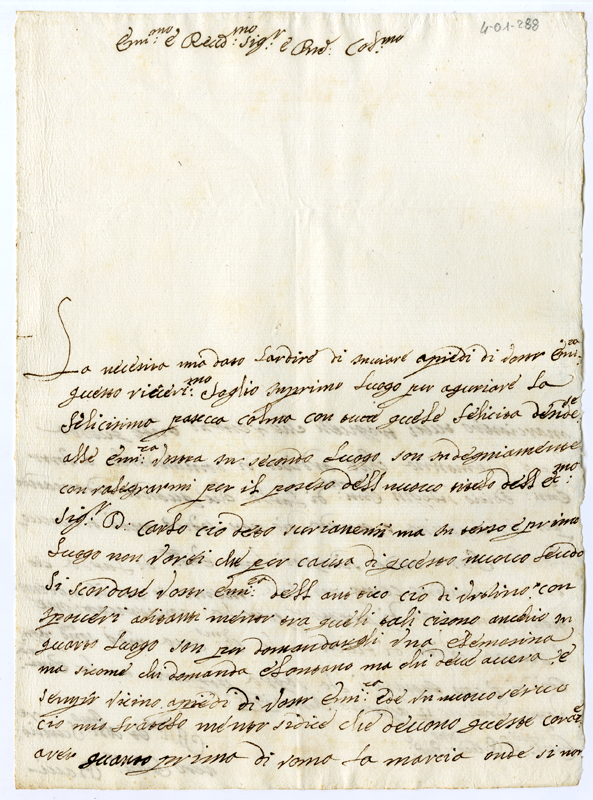 4-01-288
Emin.mo e Reud.mo Sig.r e Pne. Col.mo
La necesita mia dato lardire di inviare a piedi di Vostr Emi.za
questo rive.mo foglio in primo luogo per aguriare La
felicisima pascua colma con tuta quele felicita
alle Emi.za Vostra in secondo Luogo son indegniamente
con ralegrarmi per il poseso dell nuovo titolo dell Ec.mo
Sig.r D: Carlo cio deto ma in terso e primo
Luogo non vorei che per causa di questo nuovo feudo
Si scordase Vostr Emi.za dell antico cio di con
poveri abitanti mentre tra queli tali cisono anchio in
quarto Luogo son per domandargli una elemosina
ma sicome chi domanda e lontano ma chi deve
sempre vicino a piedi di Vostr Emi.za
cio mio fratelo mentre sidice che devono queste
aver quanto prima di roma La marcia onde si